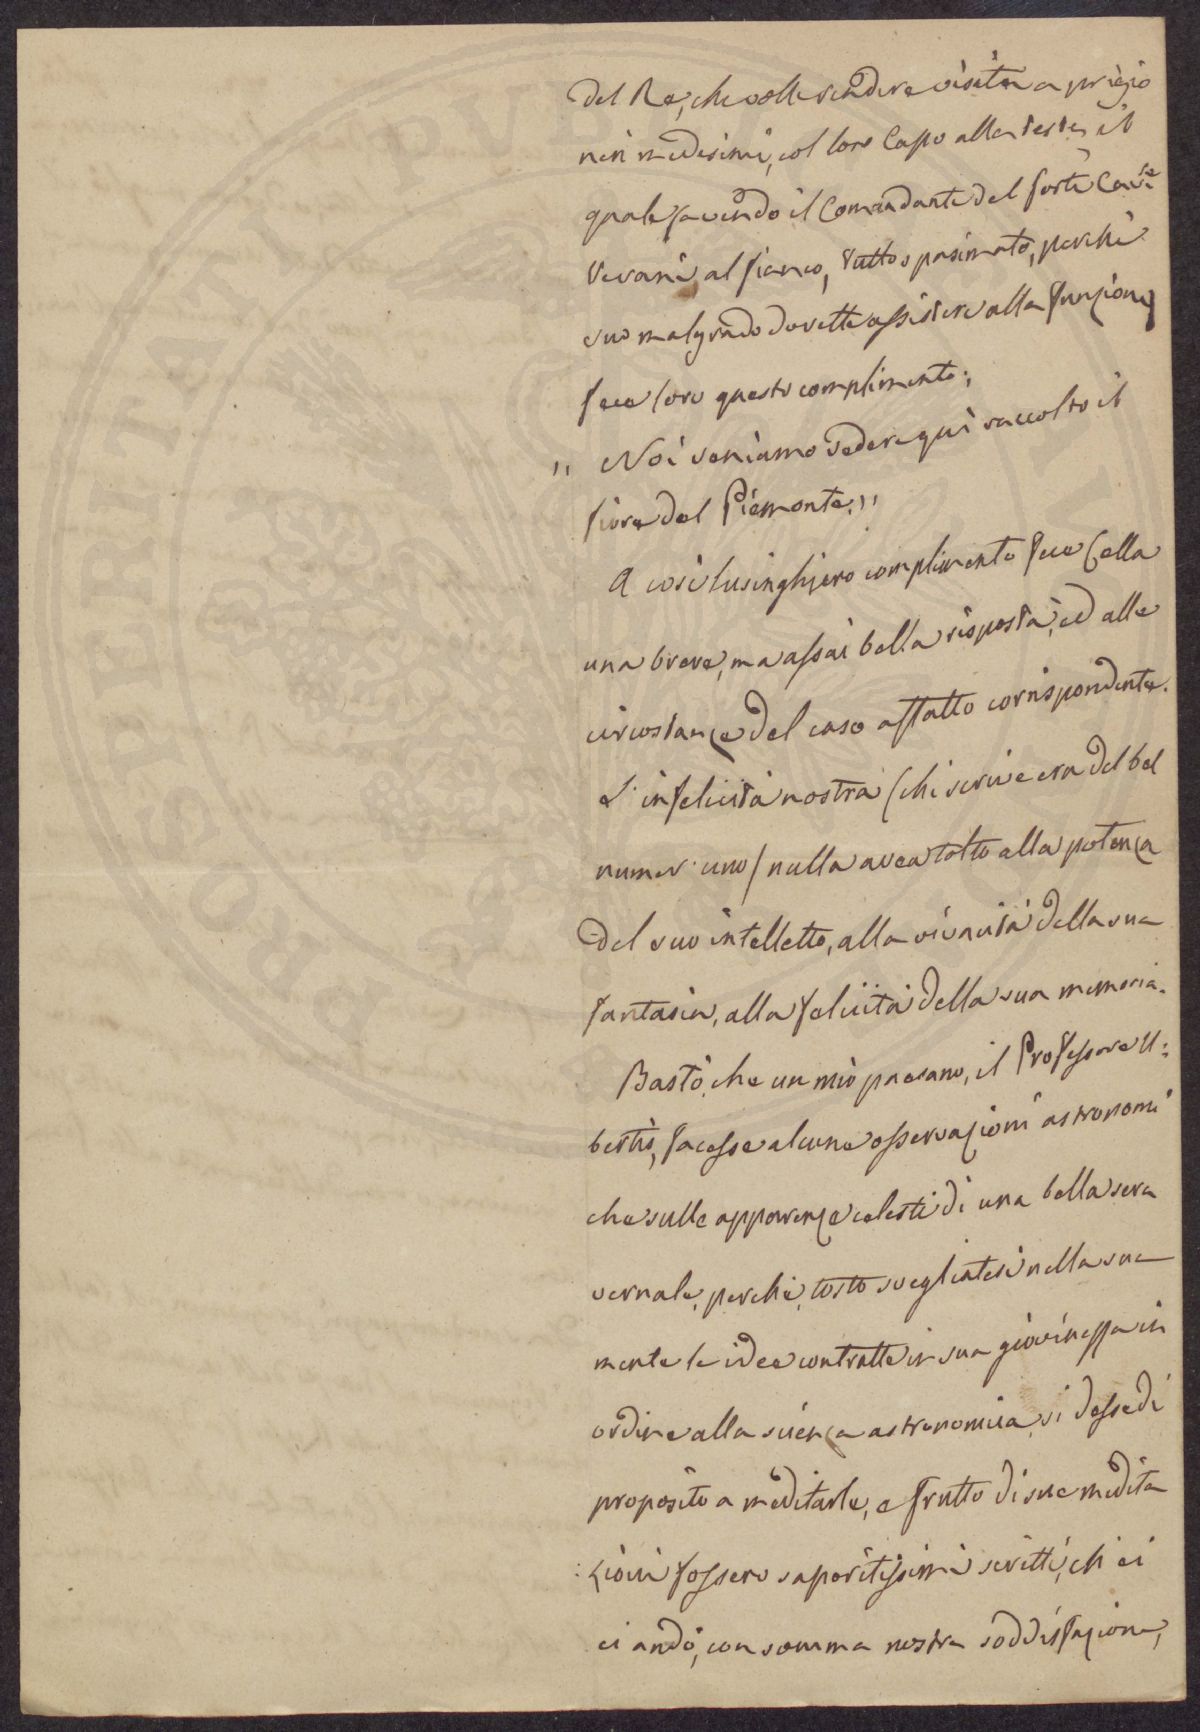 del Re, che volle rendere visita a prigio
nieri medesimi, col loro Capo alla testa, il
quale facendo il Comandante del forte Cav.re
Verani, al fianco, tutto spasimato, perchè
suo malgrado dovette assistere alla funzione,
fece loro questo complimento:
" Noi veniamo vedere quì raccolto il
fiore del Piemonte."
A così lusinghiero complimento fece Cella
una breve, ma assai bella risposta, ed alle
circostanze del caso affatto corrispondente.
L'infelicità nostra (chi scrive era del bel
numer' uno) nulla avea tolto alla potenza
del suo intelletto, alla vivacità della sua
fantasia, alla felicità della sua memoria.
Bastò, che un mio paesano, il Professore U:
bertis, facesse alcune osservazioni astronomi
che sulle apparenze celesti di una bella sera
vernale, perchè, tosto svegliatesi nella sua
mente le idee contratte in sua giovinezza in
ordine alla scienza astronomica, si desse di
proposito a meditarle, e frutto di sue medita
:zioni fossero saporitissimi scritti, ch'ei
ci andò, con somma nostra soddisfazione,
POSTERITATI